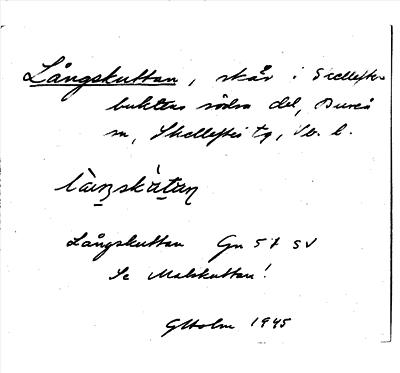 Långskuttan, skär i Skellefte-
buktens södra del, Bureå
sn, Skellefteå tg, Vb. l.
Långskuttan Gn 57 SV
Se Malskuttan!
GHolm 1945